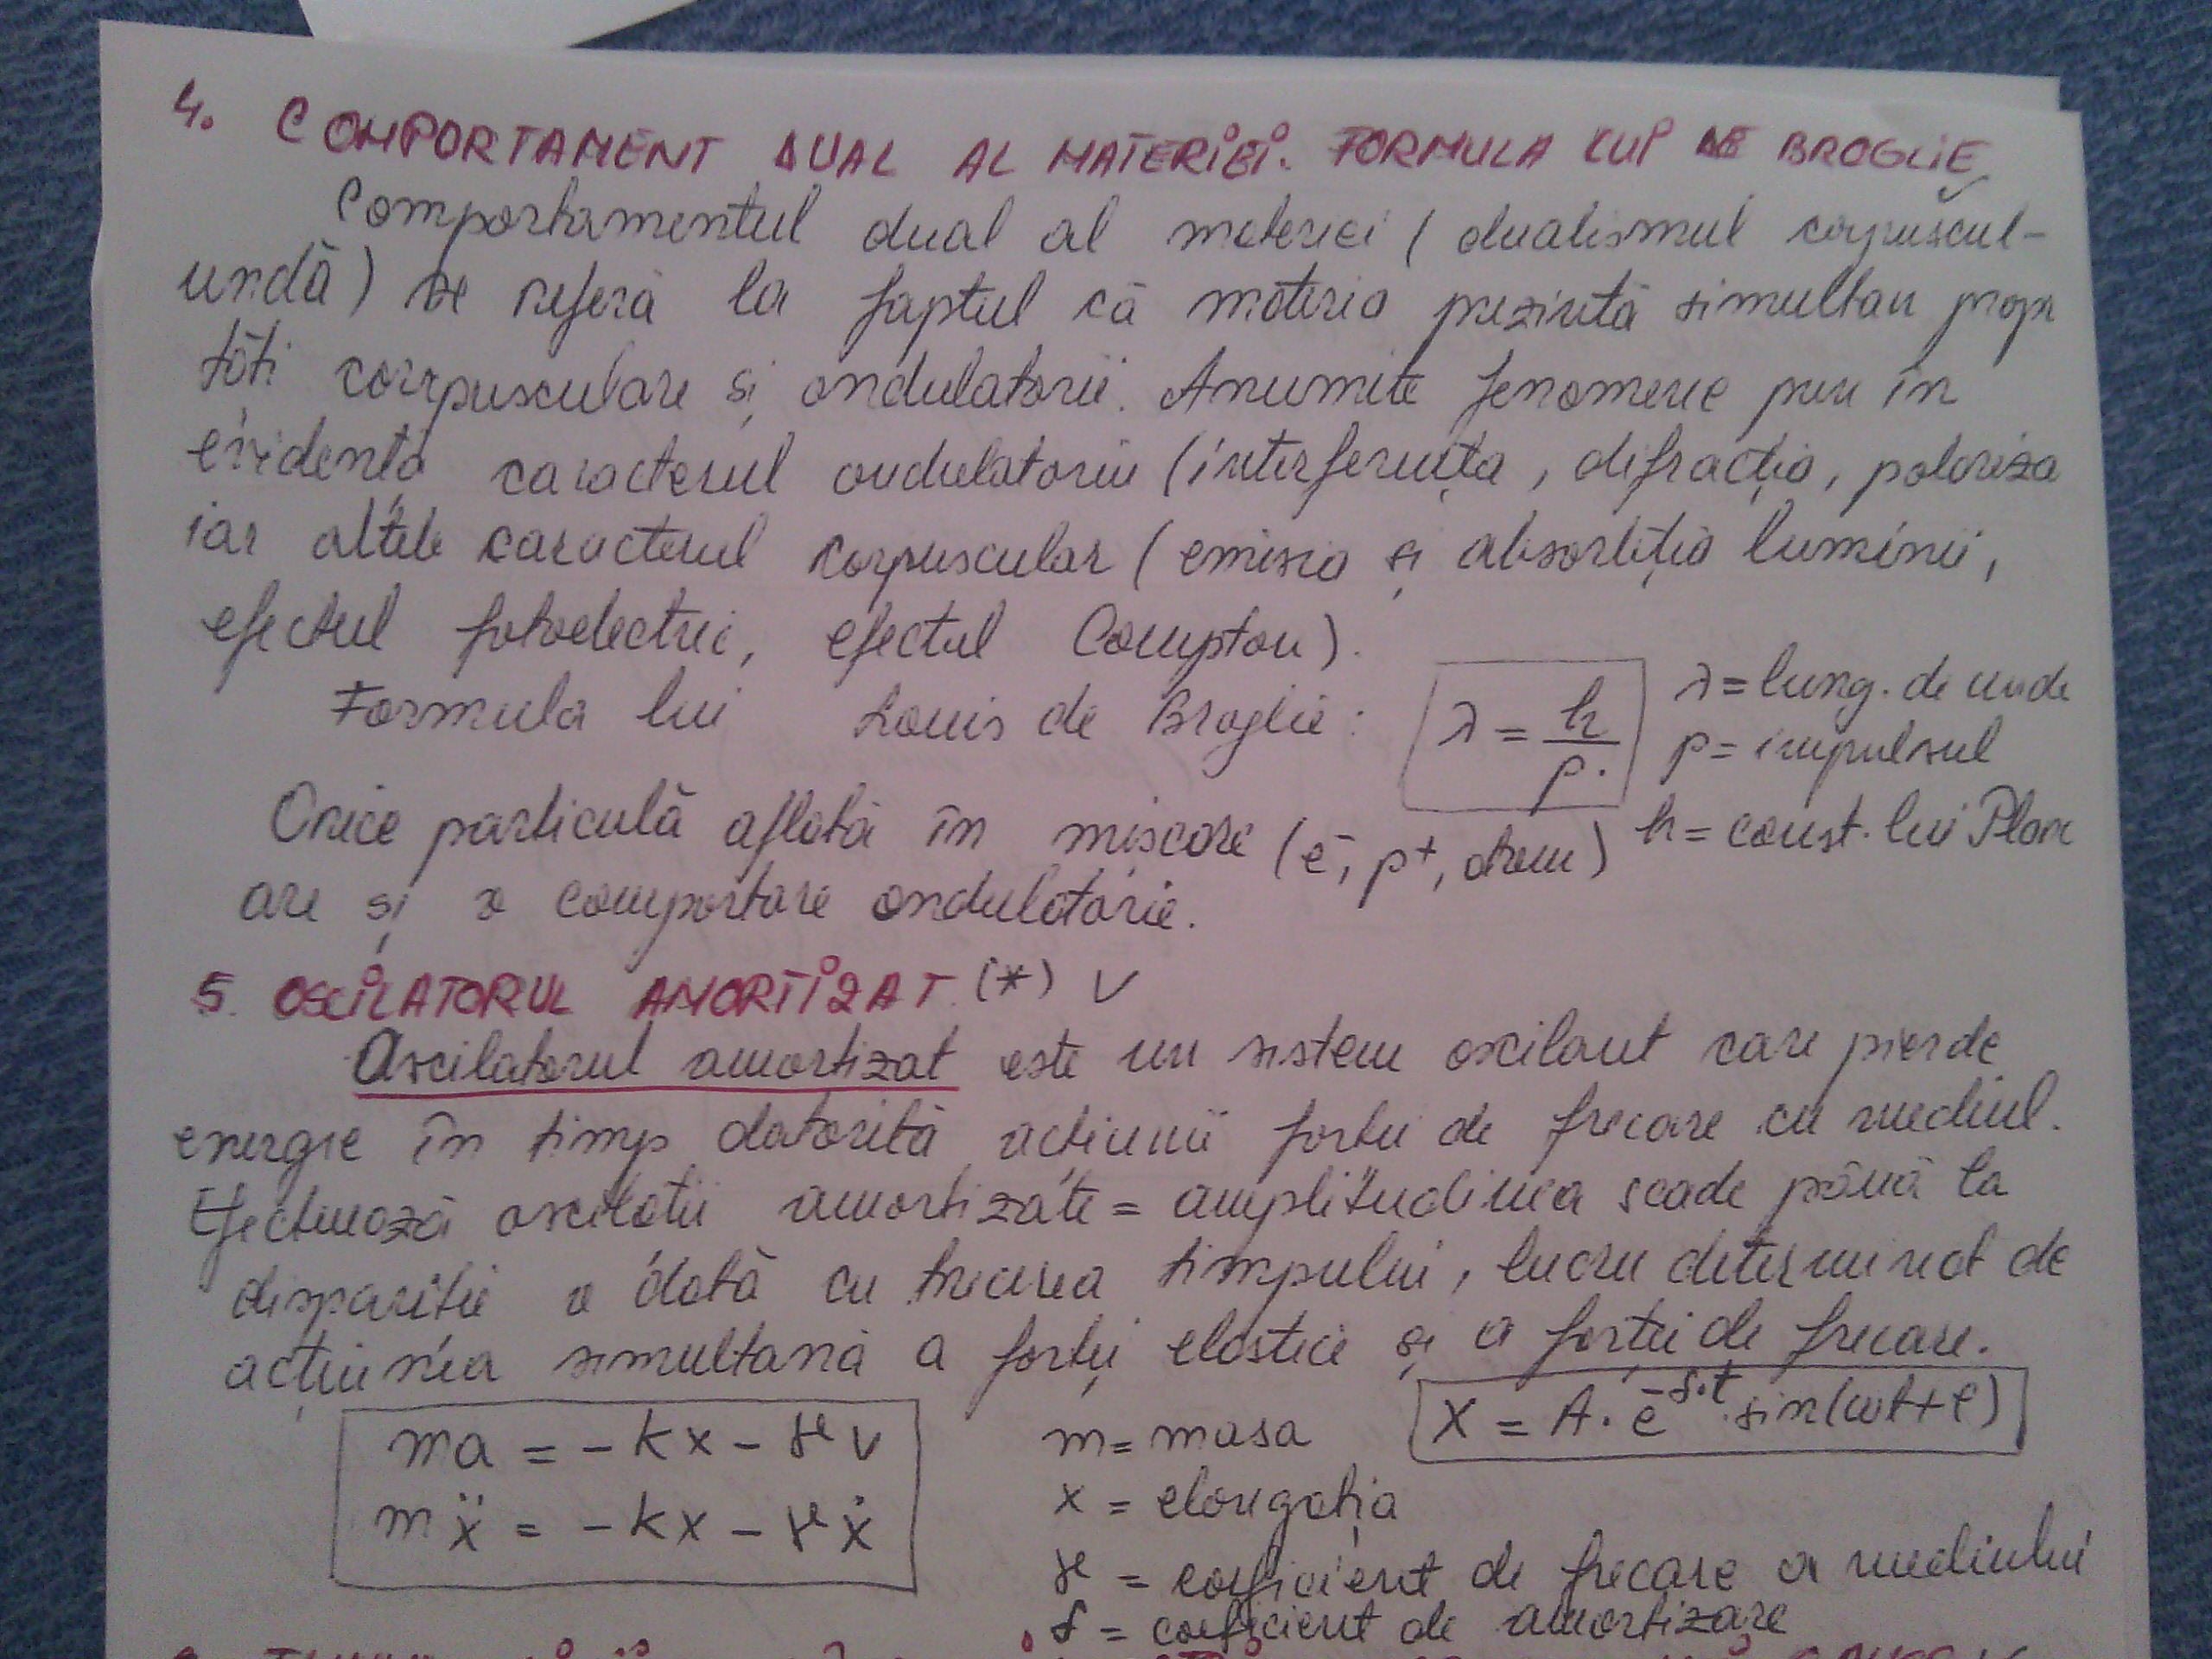 4. COMPORTAMENT DUAL AL MATERIEI. FORMULA LUI DE BROGLIE
Comportamentul dual al materiei (dualismul corpuscul-
undă) se referă la faptul că materia prezintă simultan propr
tăți corpusculare și ondulatorii. Anumite fenomene pun în
evidență caracterul ondulatoriu (interferența, difracția, polariza
iar altele caracterul corpuscular (emisia și absorbția luminii,
efectul fotoelectric, efectul Compton).
Formula lui Louis de Broglie: λ = h/p. λ = lung. de undă
p = impulsul
Orice particulă aflată în mișcare (e⁻, p⁺, atom) h = const. lui Planc
are și o comportare ondulatorie.
5. OSCILATORUL AMORTIZAT. (*) V
Oscilatorul amortizat este un sistem oscilant care pierde
energie în timp datorită acțiunii forței de frecare cu mediul.
Efectuează oscilații amortizate = amplitudinea scade până la
dispariție o dată cu trecerea timpului, lucru determinat de
acțiunea simultană a forței elastice și a forței de frecare.
ma = -kx - μv m = masa X = A·e^(-δ·t)·sin(ωt+φ)
mẍ = -kx - μẋ x = elongația
μ = coeficient de frecare a mediului
δ = coeficient de amortizare